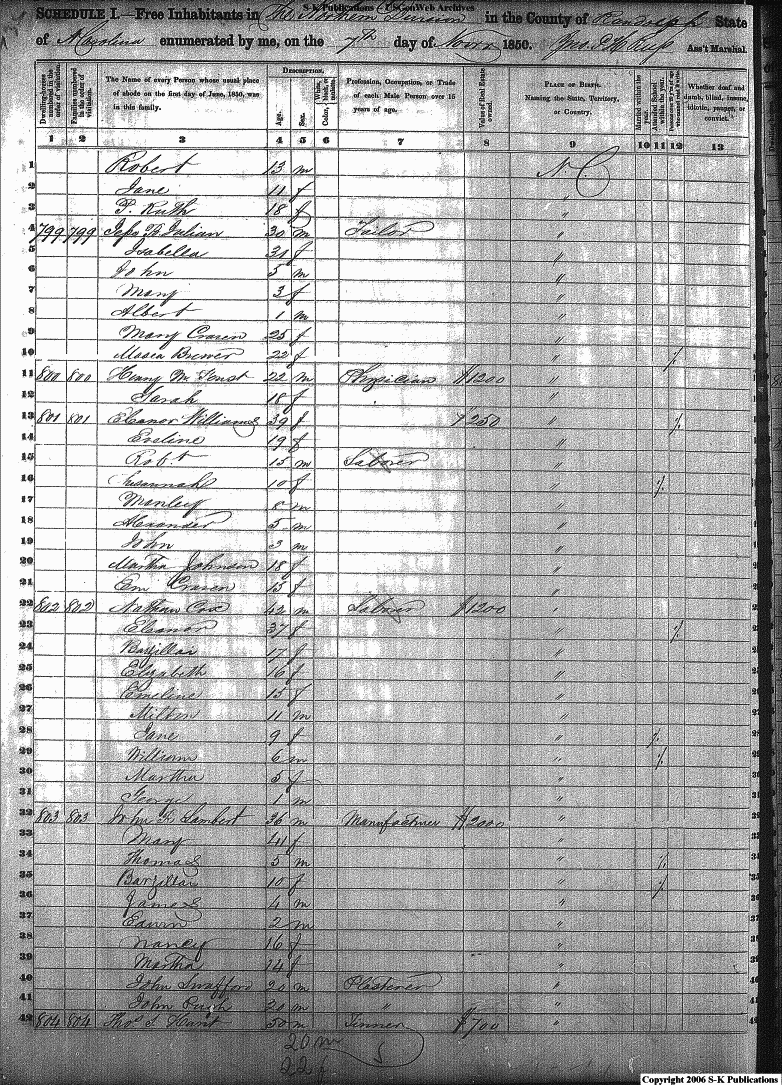 S-K Publications - USGenWeb Archives
SCHEDULE I.—Free Inhabitants in The Northern Division in the County of Randolph State
of N Carolina enumerated by me, on the 7th day of Novr 1850. Ass't Marshal.
Dwelling-houses numbered in the order of visitation.
Families numbered in the order of visitation.
The Name of every Person whose usual place of abode on the first day of June, 1850, was in this family.
Description.
Age.
Sex.
White, Color, black, or mulatto.
Profession, Occupation, or Trade of each Male Person over 15 years of age.
Value of Real Estate owned.
Place of Birth. Naming the State, Territory, or Country.
Married within the year.
Attended School within the year.
Whether deaf and dumb, blind, insane, idiotic, pauper, or convict.
1 2 3 4 5 6 7 8 9 10 11 12 13
1 Robert 13 m N C
2 Jane 11 f "
3 P. Ruth 18 f "
4 799 799 Julian 30 m Tailor "
5 Isabella 31 f "
6 John 5 m "
7 Mary 3 f "
8 Albert 1 m "
9 Mary Craven 25 f "
10 Brewer 22 f " /
11 800 800 Henry M. 22 m Physician $1200 "
12 Sarah 18 f "
13 801 801 Eleanor Williams 39 f $250 " /
14 19 f "
15 Robt 15 m Laborer "
16 Susannah 10 f " /
17 Manley 8 m "
18 Alexander 5 m "
19 John 3 m "
20 Martha Johnson 18 f "
21 Em Craven 15 f "
22 802 802 Nathan Cox 42 m Laborer $1200 "
23 Eleanor 37 f " /
24 Barzillai 17 f "
25 Elizabeth 16 f "
26 Emeline 15 f "
27 Milton 11 m "
28 Jane 9 f " /
29 William 6 m " /
30 Martha 5 f "
31 George 1 m "
32 803 803 John Lambert 36 m Manufacturer $2000 "
33 Mary 41 f "
34 Thomas 5 m " /
35 Barzillai 10 f " /
36 James 4 m "
37 Edwin 2 m "
38 Nancy 16 f "
39 Martha 14 f "
40 John Swafford 20 m Plasterer "
41 John Pugh 20 m " "
42 804 804 Thos Hunt 50 m Tinner $700 "
20 m
22 f
Copyright 2006 S-K Publications